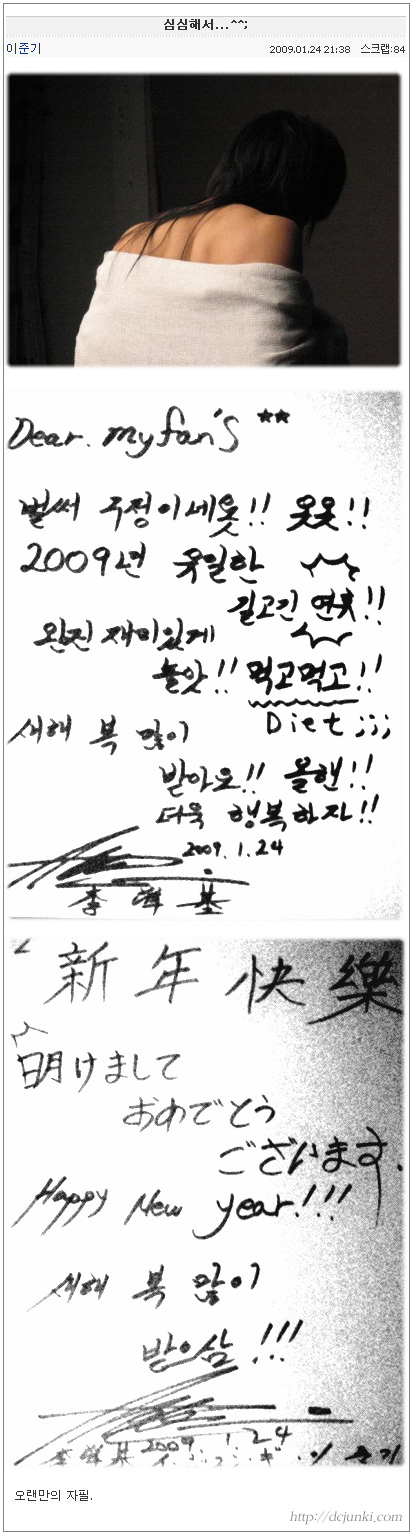 심심해서...^^;
이준기 2009.01.24 21:38 스크랩:84
Dear. my fan's **
벌써 구정이세욧!! 욧욧!!
2009년 유일한
길고긴 연휴!!
완전 재미있게
놀앗!! 먹고먹고!!
Diet ;;;
새해 복 많이
받아요!! 올핸!!
더욱 행복하자!!
2009.1.24
李準基
新年快樂
明けまして
おめでとう
ございます.
Happy New year!!!
새해 복 많이
받으삼!!!
2009 1.24
李準基 이준기
오랜만의 자필.
http://dcjunki.com